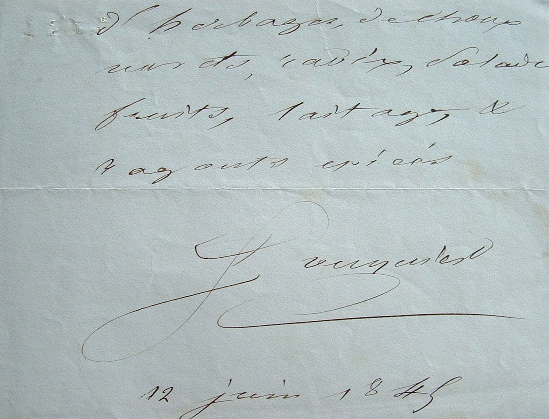 d'herbages, de choux
navets, radix, salade
fruits, laitage, &
ragouts epicés
12 juin 1845